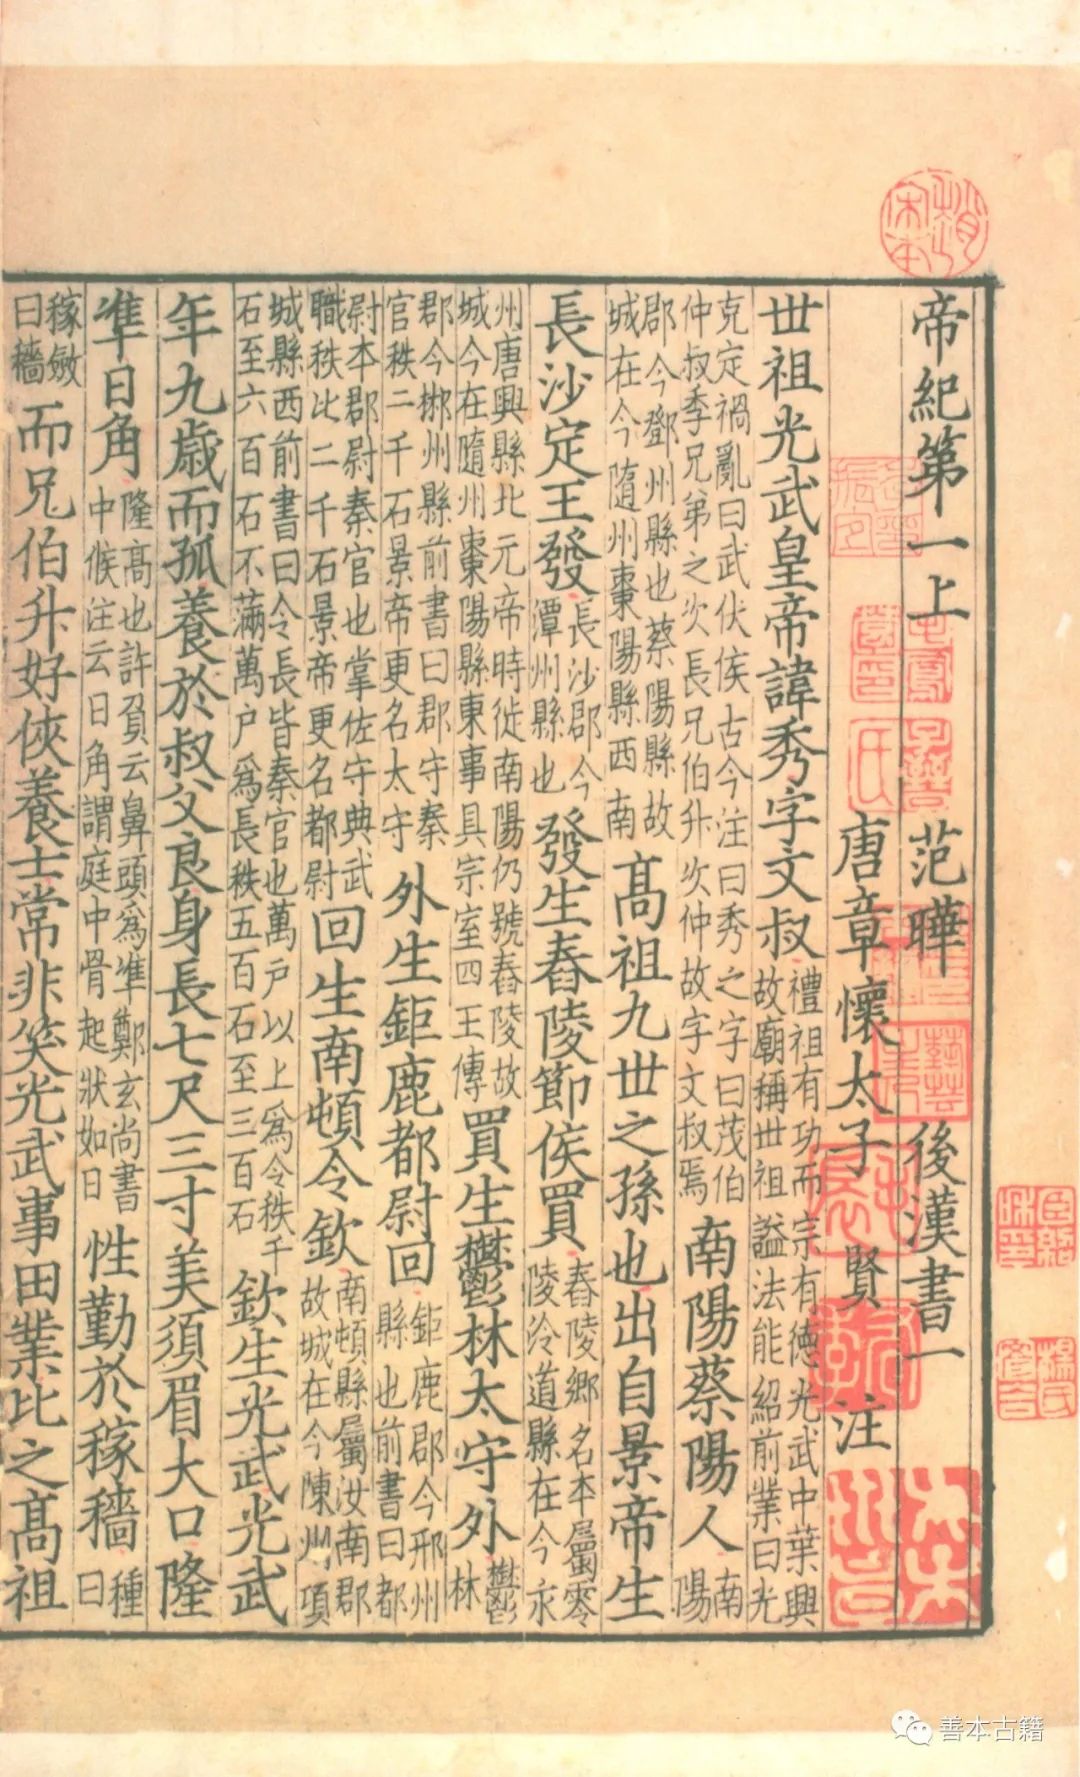 帝紀第一上　范曄　後漢書一
唐章懷太子　賢　注
世祖光武皇帝諱秀字文叔禮祖有功而宗有德光武中葉興故廟稱世祖謚法能紹前業曰光
克定禍亂曰武伏侯古今注曰秀之字曰茂伯仲叔季兄弟之次長兄伯升次仲故字文叔焉南陽蔡陽人南陽
郡今鄧州縣也蔡陽縣故城在今隨州棗陽縣西南高祖九世之孫也出自景帝生
長沙定王發長沙郡今潭州縣也發生舂陵節侯買舂陵鄉名本屬零陵泠道縣在今永
州唐興縣北元帝時徙南陽仍號舂陵故城今在隨州棗陽縣東事具宗室四王傳買生鬱林太守外鬱林
郡今郴州縣前書曰郡守秦官秩二千石景帝更名太守外生鉅鹿都尉回鉅鹿郡今邢州縣也前書曰都
尉本郡尉秦官也掌佐守典武職秩比二千石景帝更名都尉回生南頓令欽南頓縣屬汝南郡故城在今陳州項
城縣西前書曰令長皆秦官也萬戶以上爲令秩千石至六百石不滿萬户爲長秩五百石至三百石欽生光武光武
年九歲而孤養於叔父良身長七尺三寸美須眉大口隆
準日角隆高也許負云鼻頭爲準鄭玄尚書中候注云日角謂庭中骨起狀如日性勤於稼穡種曰
稼斂曰穡而兄伯升好俠養士常非笑光武事田業比之高祖
善本古籍